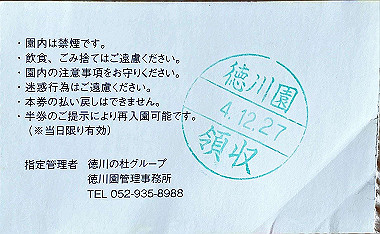 ・園内は禁煙です。
・飲食、ごみ捨てはご遠慮ください。
・園内の注意事項をお守りください。
・迷惑行為はご遠慮ください。
・本券の払い戻しはできません。
・半券のご提示により再入園可能です。
（※当日限り有効）
指定管理者 徳川の杜グループ
徳川園管理事務所
TEL 052-935-8988
徳川園
4.12.27
領収